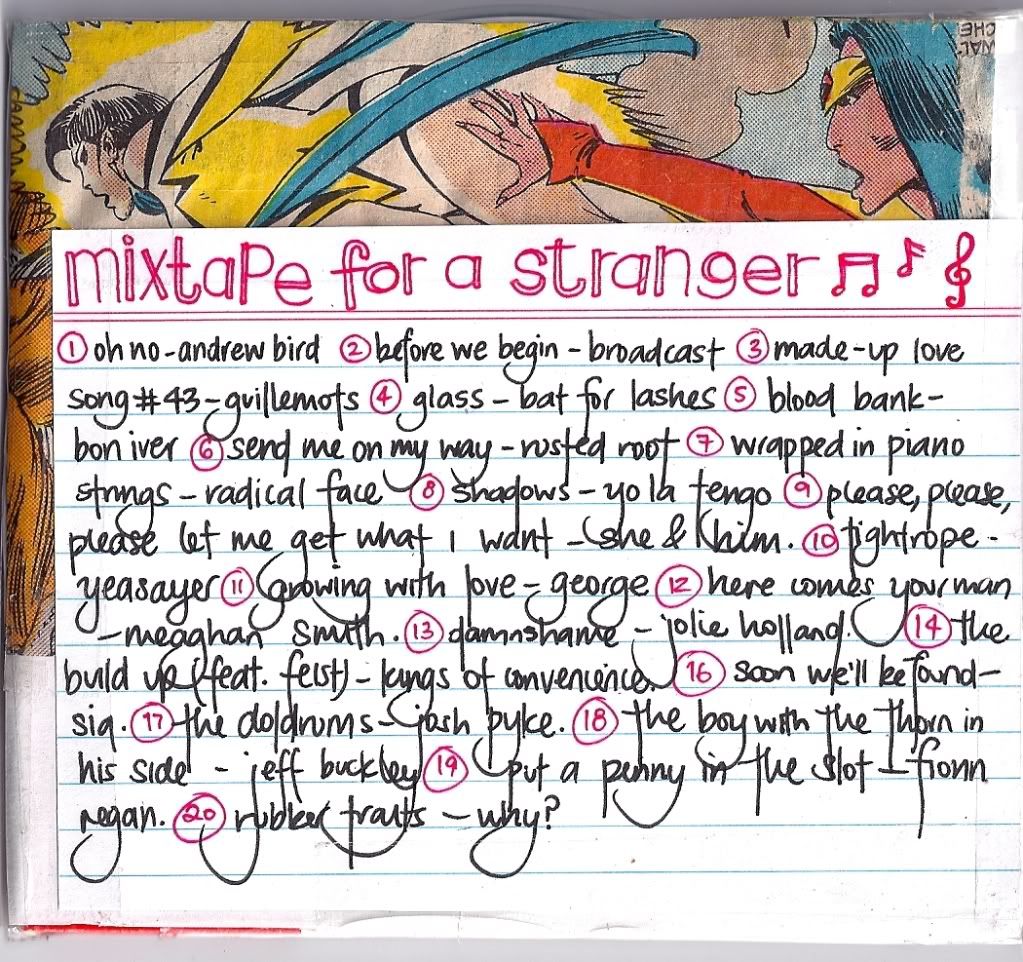 WAL
CHE
mixtape for a stranger
① oh no - andrew bird ② before we begin - broadcast ③ made-up love
song #43 - guillemots ④ glass - bat for lashes ⑤ blood bank -
bon iver ⑥ send me on my way - rusted root ⑦ wrapped in piano
strings - radical face ⑧ shadows - yo la tengo ⑨ please, please,
please let me get what i want - she & him. ⑩ tightrope -
yeasayer ⑪ growing with love - george ⑫ here comes your man
- meaghan smith. ⑬ damn shame - jolie holland. ⑭ the
build up (feat. feist) - kings of convenience. ⑯ soon we'll be found -
sia. ⑰ the doldrums - josh pyke. ⑱ the boy with the thorn in
his side - jeff buckley ⑲ put a penny in the slot - fionn
regan. ⑳ rubber traits - why?